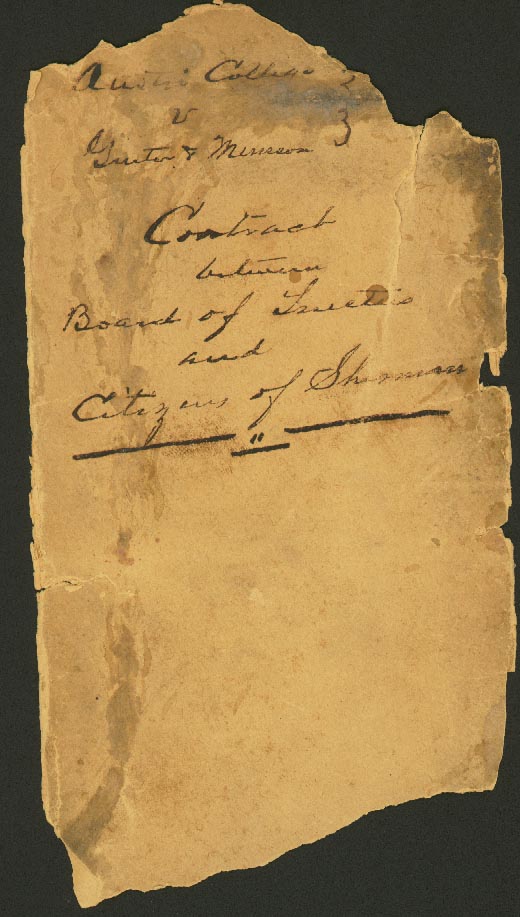 Austin College }
v
Gunter & Munson
Contract
between
Board of Trustees
and
Citizens of Sherman
"